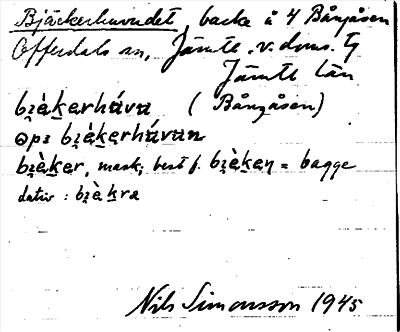 Bjäckerhuvudet, backe å 4 Bångåsen
Offerdals sn, Jämtl. v. doms. tj
Jämtl län
bɪ̯èk̯erháva ( Bångåsen)
opɜ bɪ̯èk̯erhávan
bɪ̯èk̯er, mask; best f. bɪ̯èk̯eṇ = bagge
dativ : bɪ̯èk̯ra
Nils Simonsson 1945